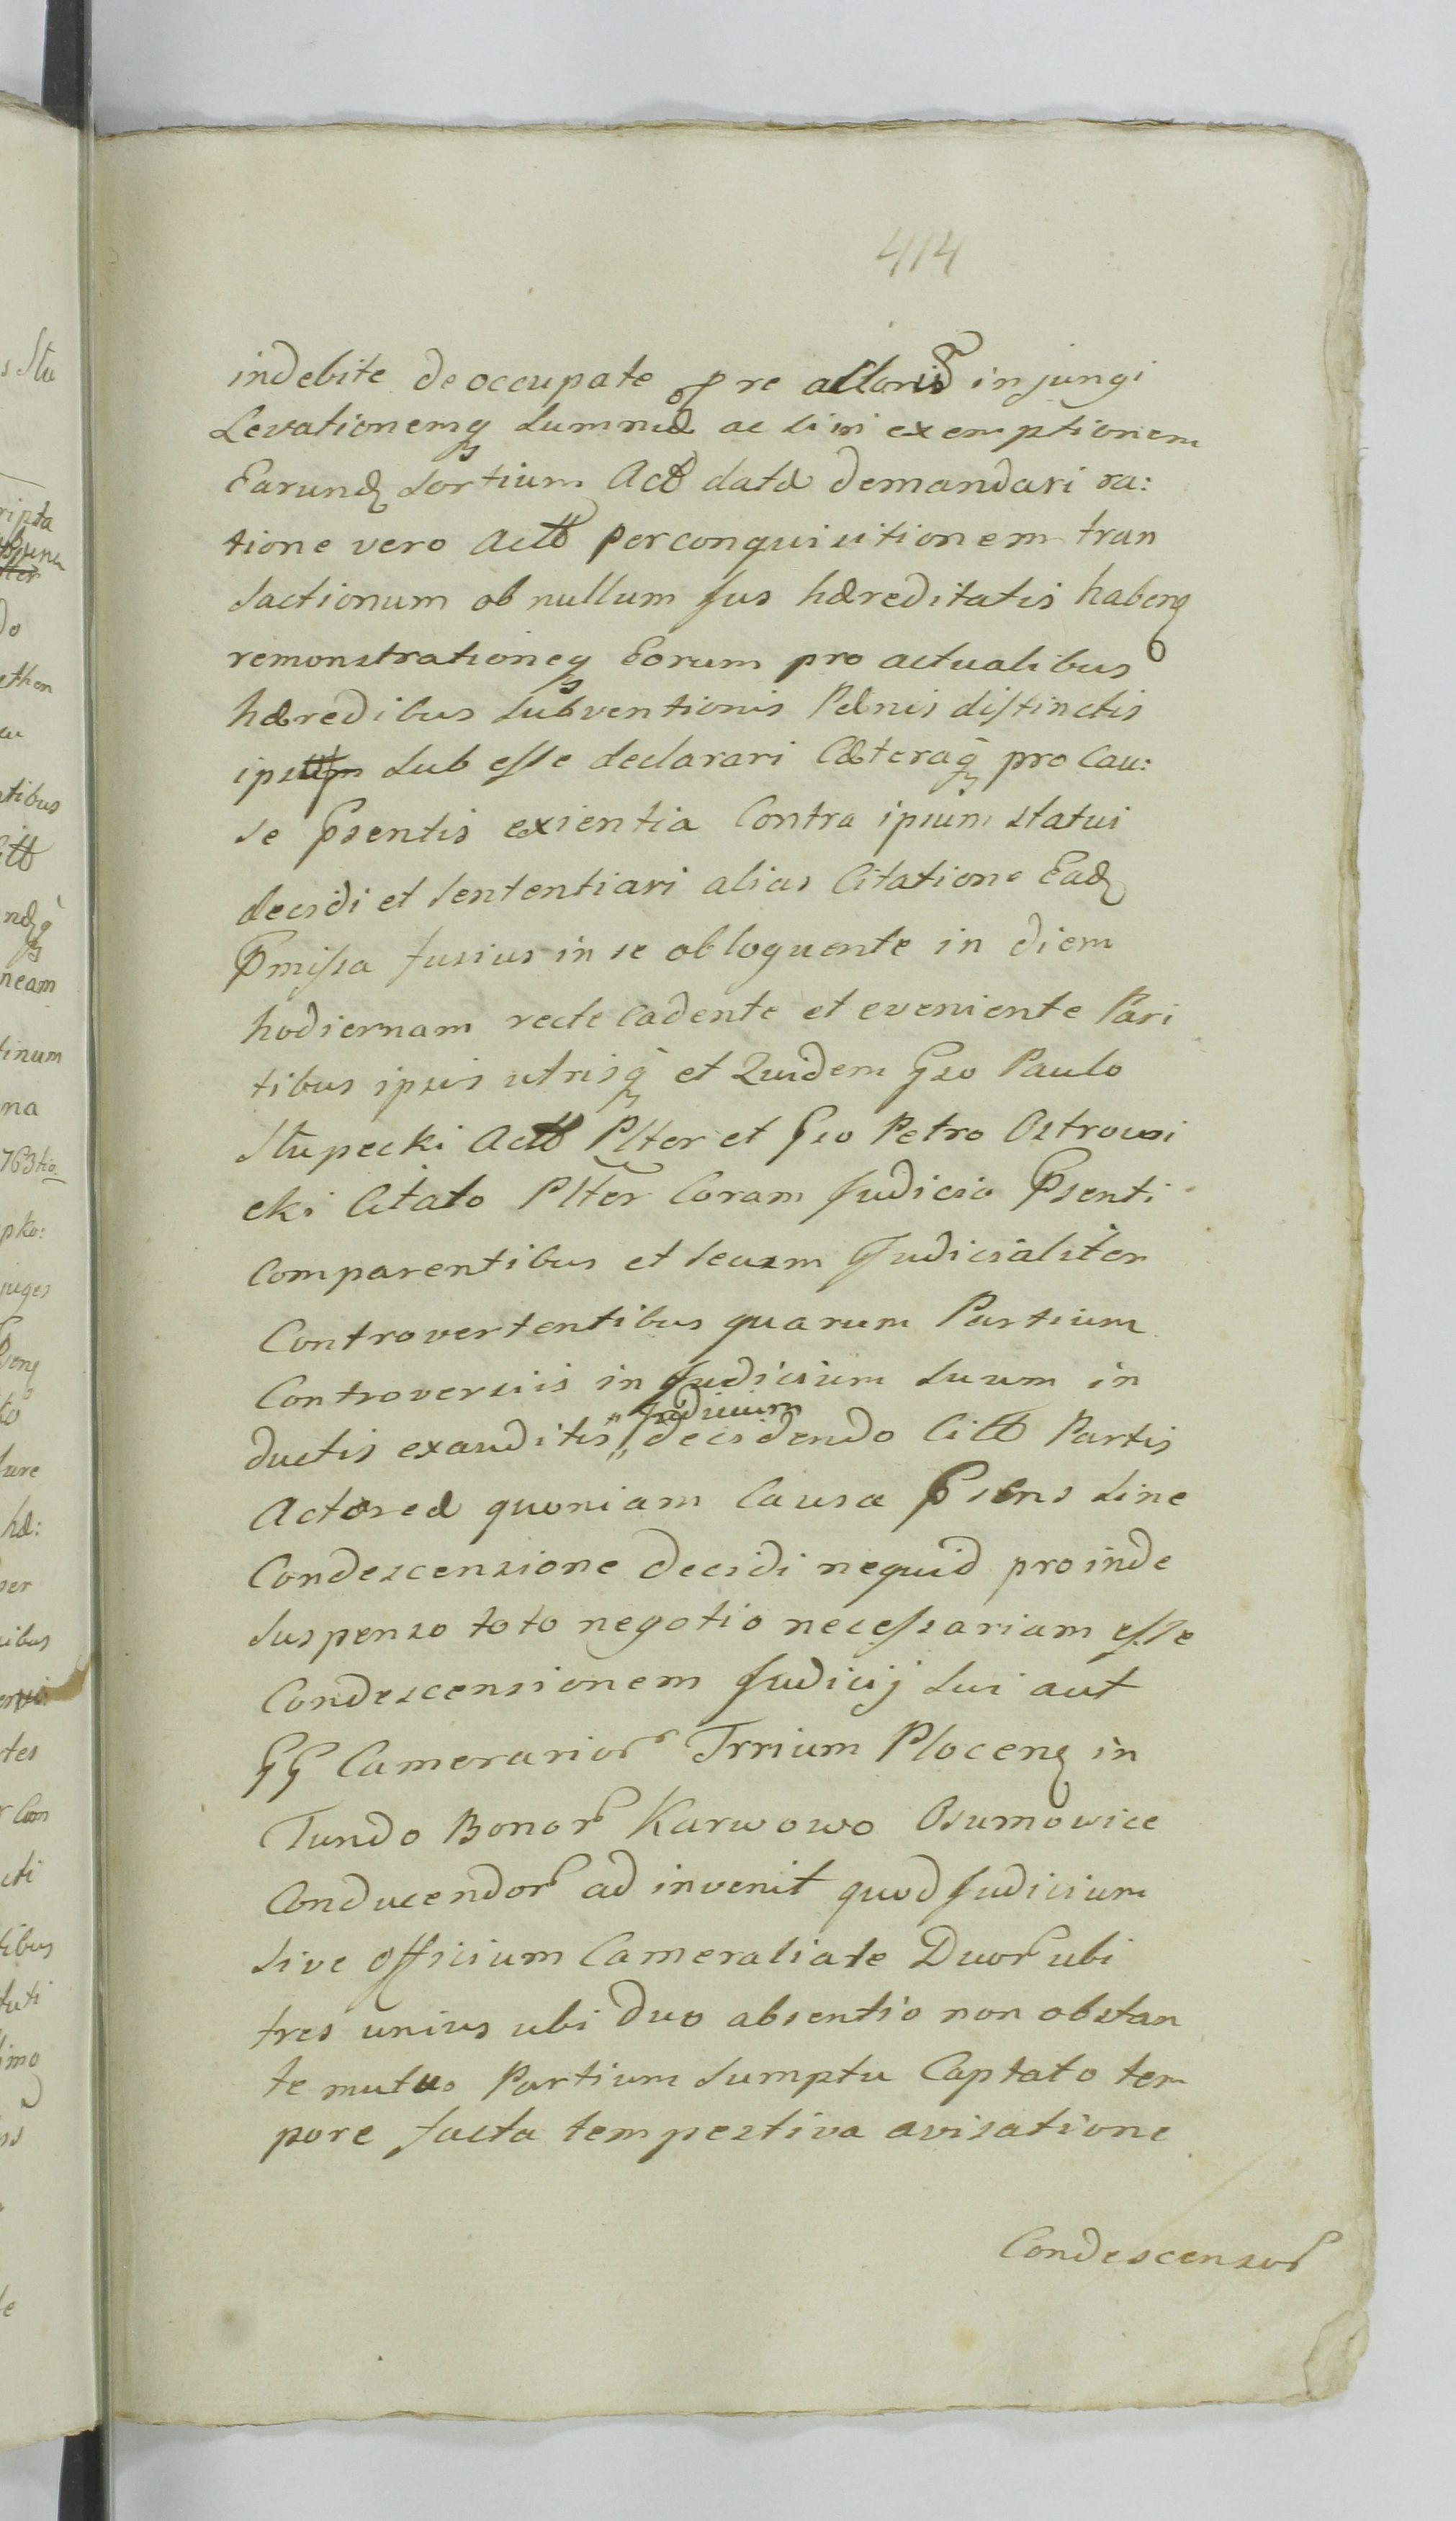 414
indebite deoccupate re actoribꝫ injungi
Levationemqꝫ summæ ac sui exemptionem
Earundꝫ sortium Actb datæ demandari ra:
tione vero Actb perconquisitionem tran
sactionum ob nullum Jus hæreditatis habenꝫ
remonstrationeqꝫ Eorum pro actualibus
hæredibus subventionis Pænis distinctis
sub esse declarari Cæteraqꝫ pro Cau:
se Psentis exsientia Contra ipsum statui
decidi et sententiari alias Citatione Eadꝫ
Pmissa fusius in se obloquente in diem
hodiernam recte Cadente et eveniente Par
tibus ipsis utrisqꝫ et Quidem Gso Paulo
Słupecki Actb Plter et Gso Petro Ostrowsi
cki Citato Plter Coram Judicio Psenti
Comparentibus et secum Judicialiter
Controvertentibus quarum Partium
Controversiis in Judicium suum in
ductis exauditis "Judicium" decidendo Citb Partis
Actoreæ quoniam Causa Psens sine
Condescensione decidi nequid proinde
suspenso toto negotio necessariam esse
Condescensionem Judicij sui aut
GG Camerarior Trrium Plocenꝫ in
Fundo Bonor Karwowo Osumowice
Conducendor ad invenit quod Judicium
sive officium Cameraliale Duor ubi
tres unius ubi duo absentio non obstan
te mutuo Partium sumptu Captato tem
pore facta tempestiva avisatione
Condescensor